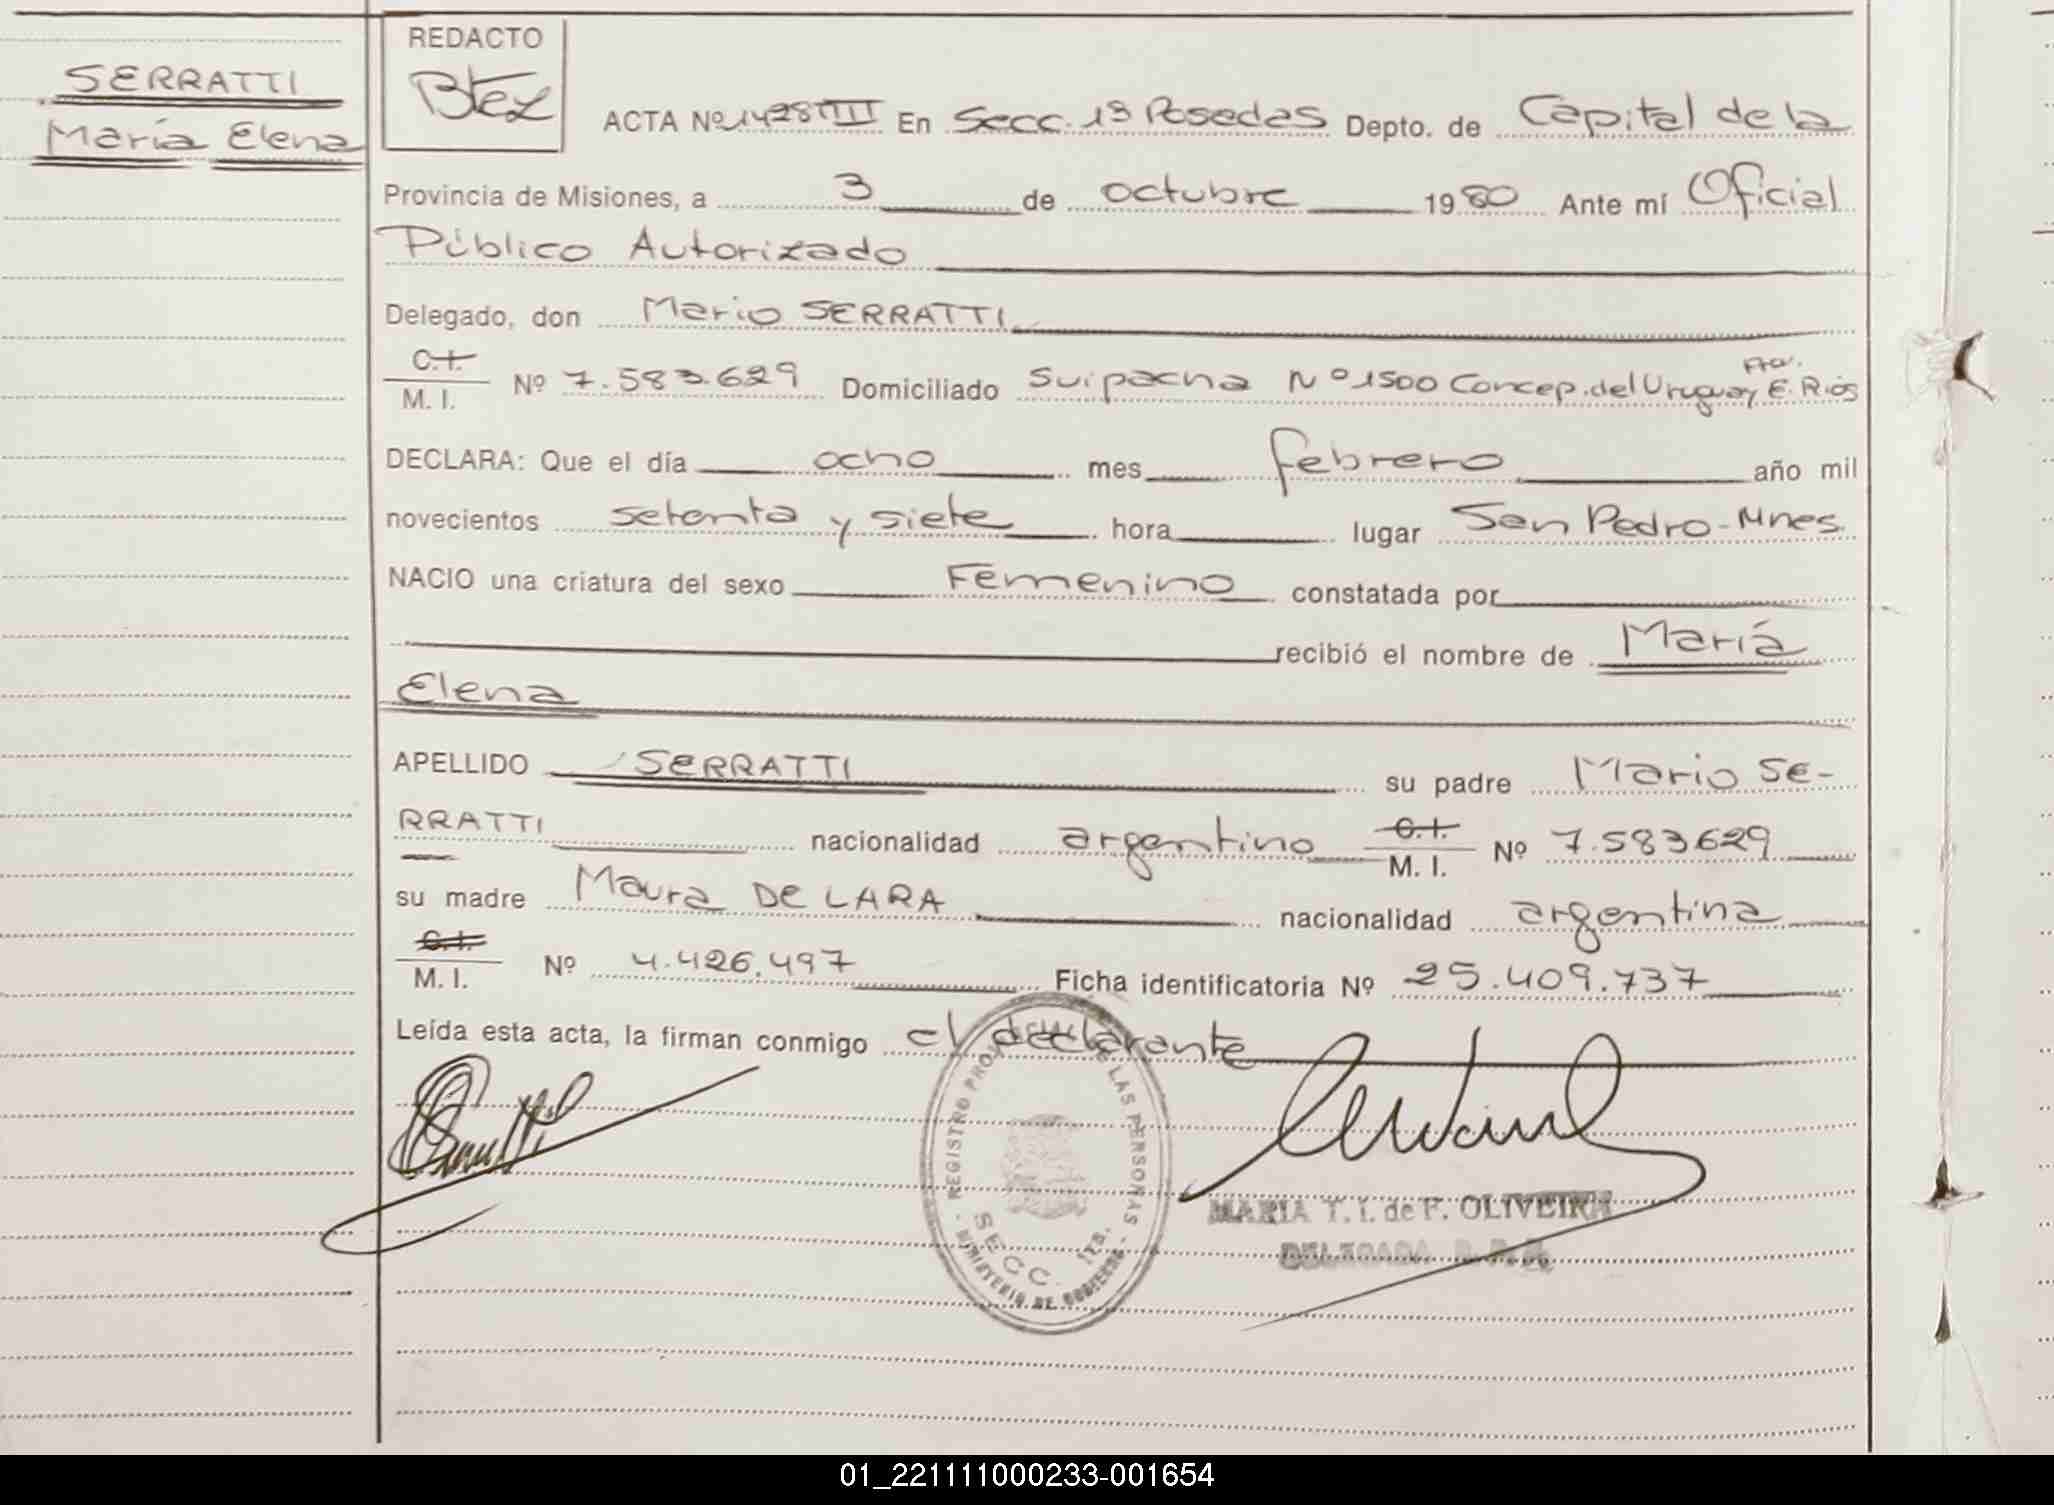 SERRATTI
María Elena
REDACTO
Btez
ACTA Nº 1428 TIII En Secc. 1ª Posadas Depto. de Capital de la
Provincia de Misiones, a 3 de octubre 1980 Ante mí Oficial
Público Autorizado
Delegado, don Mario SERRATTI
C.I.
M. I. Nº 7.583.629 Domiciliado Suipacha Nº 1500 Concep. del Uruguay E. Ríos
DECLARA: Que el día ocho mes febrero año mil
novecientos setenta y siete hora lugar San Pedro - Mnes.
NACIO una criatura del sexo Femenino constatada por
recibió el nombre de María
Elena
APELLIDO SERRATTI su padre Mario SE-
RRATTI nacionalidad argentino C.I. M. I. Nº 7.583629
su madre Maura DE LARA nacionalidad argentina
C.I.
M. I. Nº 4.426.497 Ficha identificatoria Nº 25.409.737
Leída esta acta, la firman conmigo el declarante
REGISTRO PROV. DE LAS PERSONAS
SECC. 1ra.
MINISTERIO DE GOBIERNO
MARIA T. I. de F. OLIVEIRA
DELEGADA
01_221111000233-001654